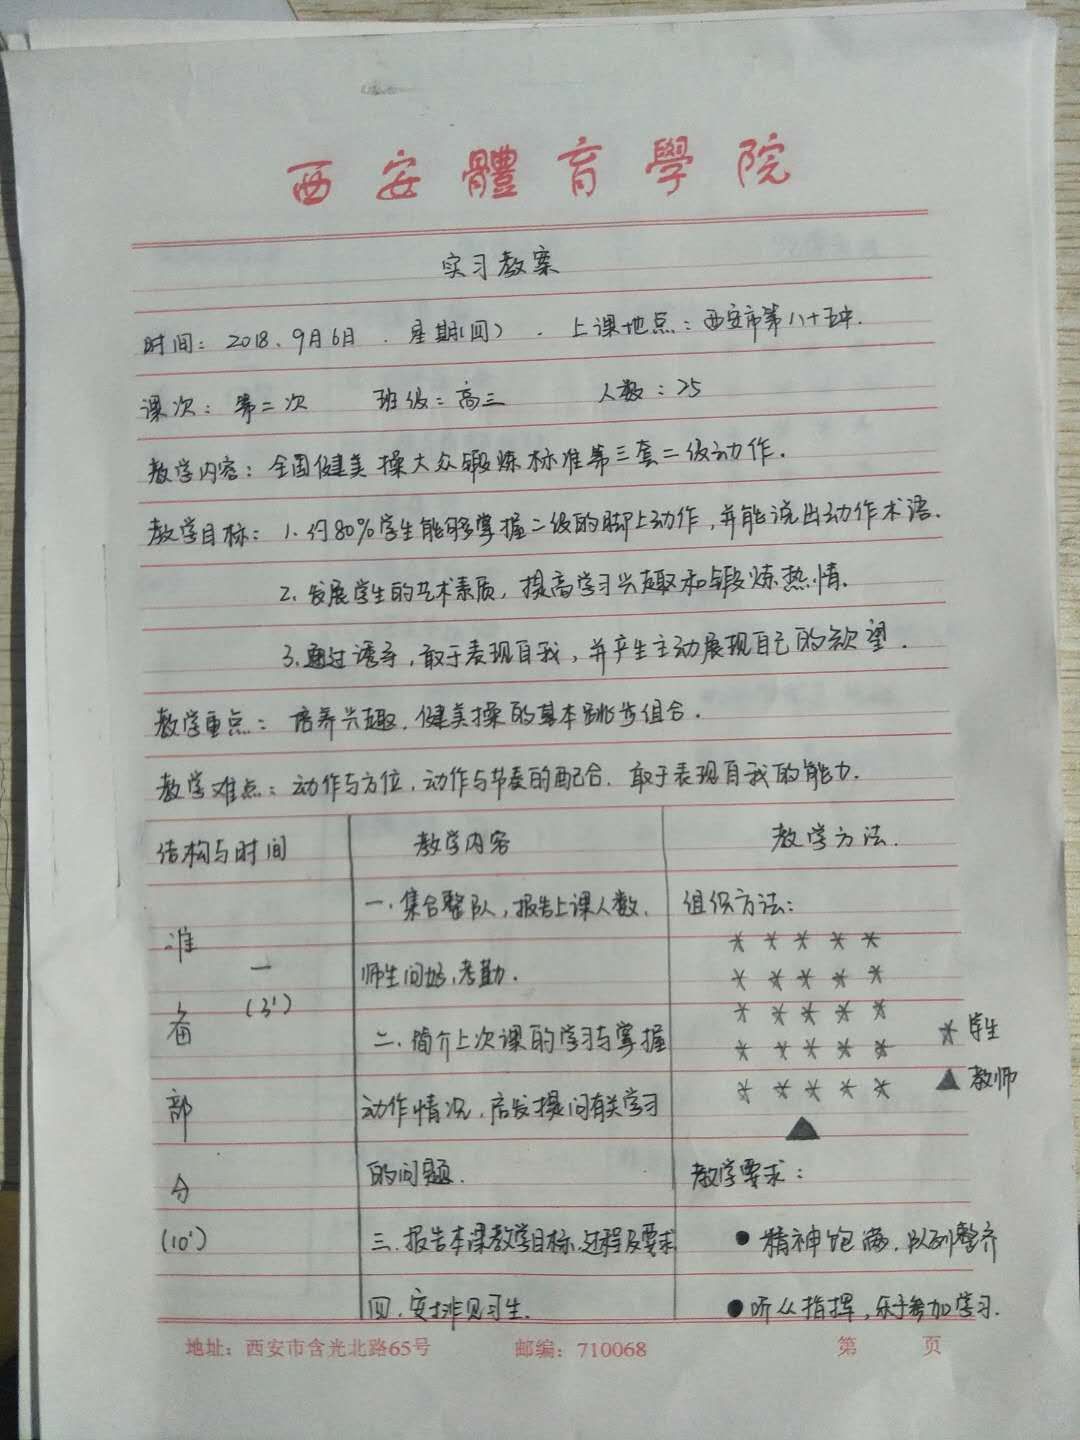 西安體育學院
实习教案
时间：2018、9月6日 . 星期(四) . 上课地点：西安市第八十五中.
课次：第二次 班级：高三 人数：25
教学内容：全国健美操大众锻炼标准第三套二级动作.
教学目标：1、约80%学生能够掌握二级的脚上动作，并能说出动作术语.
2、发展学生的艺术素质，提高学习兴趣和锻炼热情.
3、通过诱导，敢于表现自我，并产生主动展现自己的欲望.
教学重点：培养兴趣，健美操的基本跳步组合.
教学难点：动作与方位，动作与节奏的配合. 敢于表现自我的能力.
结构与时间 教学内容 教学方法.
一、集合整队，报告上课人数， 组织方法：
准 一 师生问好，考勤.
(3')
备 二、简介上次课的学习与掌握 学生
部 动作情况，启发提问有关学习 教师
分 的问题. 教学要求：
(10') 三、报告本课教学目标、过程及要求 ● 精神饱满，队列整齐
四、安排见习生. ● 听从指挥，乐于参加学习.
地址：西安市含光北路65号 邮编：710068 第 页